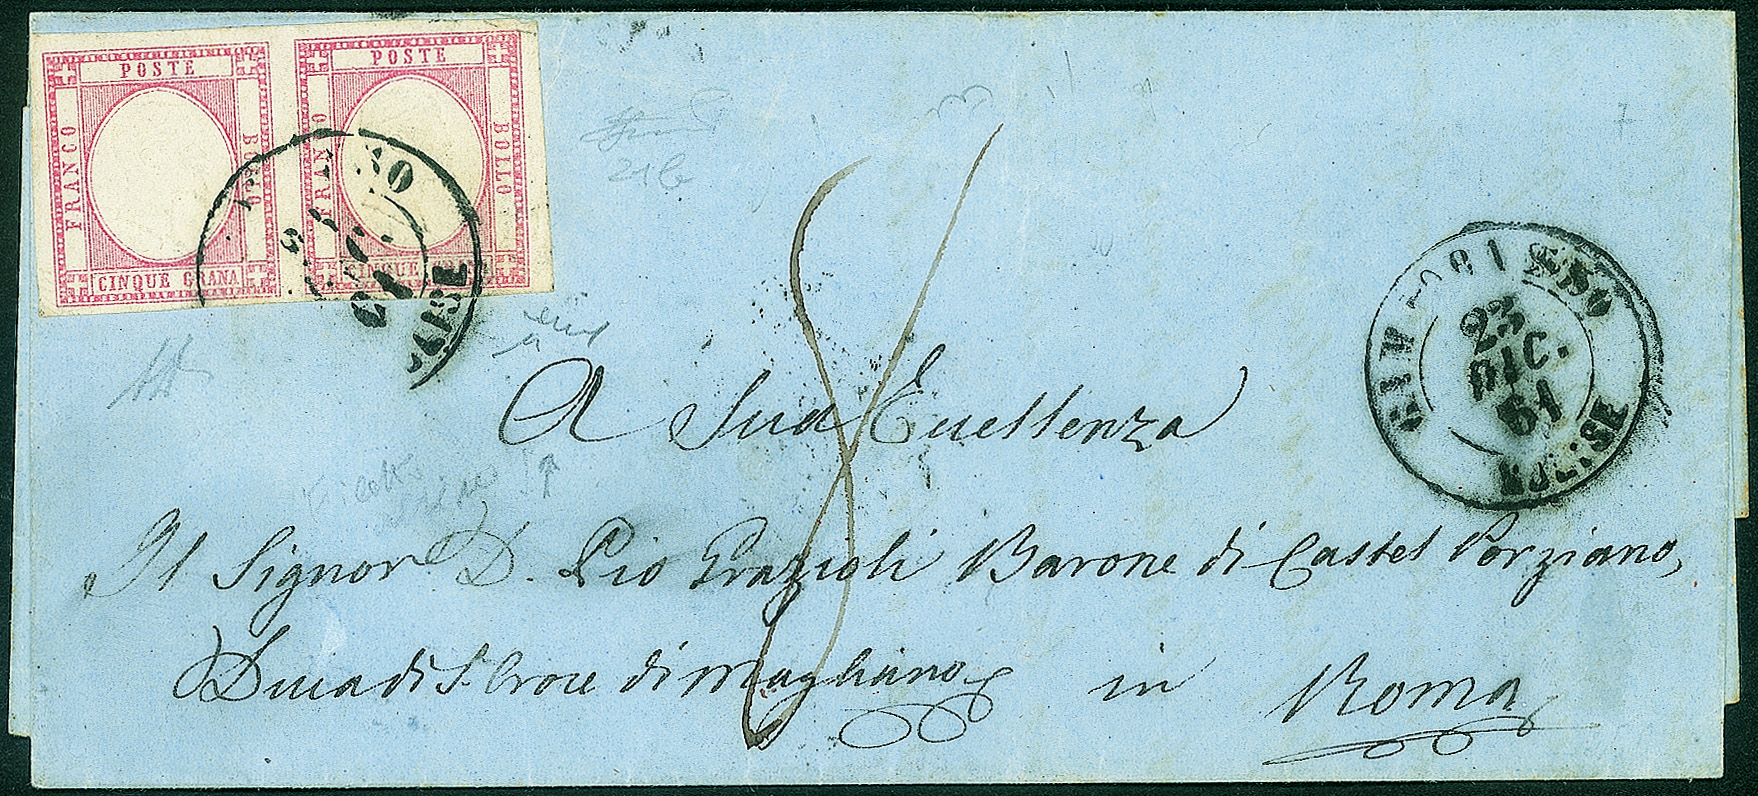 POSTE
FRANCO
BOLLO
CINQUE GRANA
POSTE
FRANCO
BOLLO
CINQUE
23
DIC.
61
21b
7
8
A Sua Eccellenza
Il Signor D. Pio Grazioli Barone di Castel Porziano,
Duca di S. Croce di Magliano
in Roma